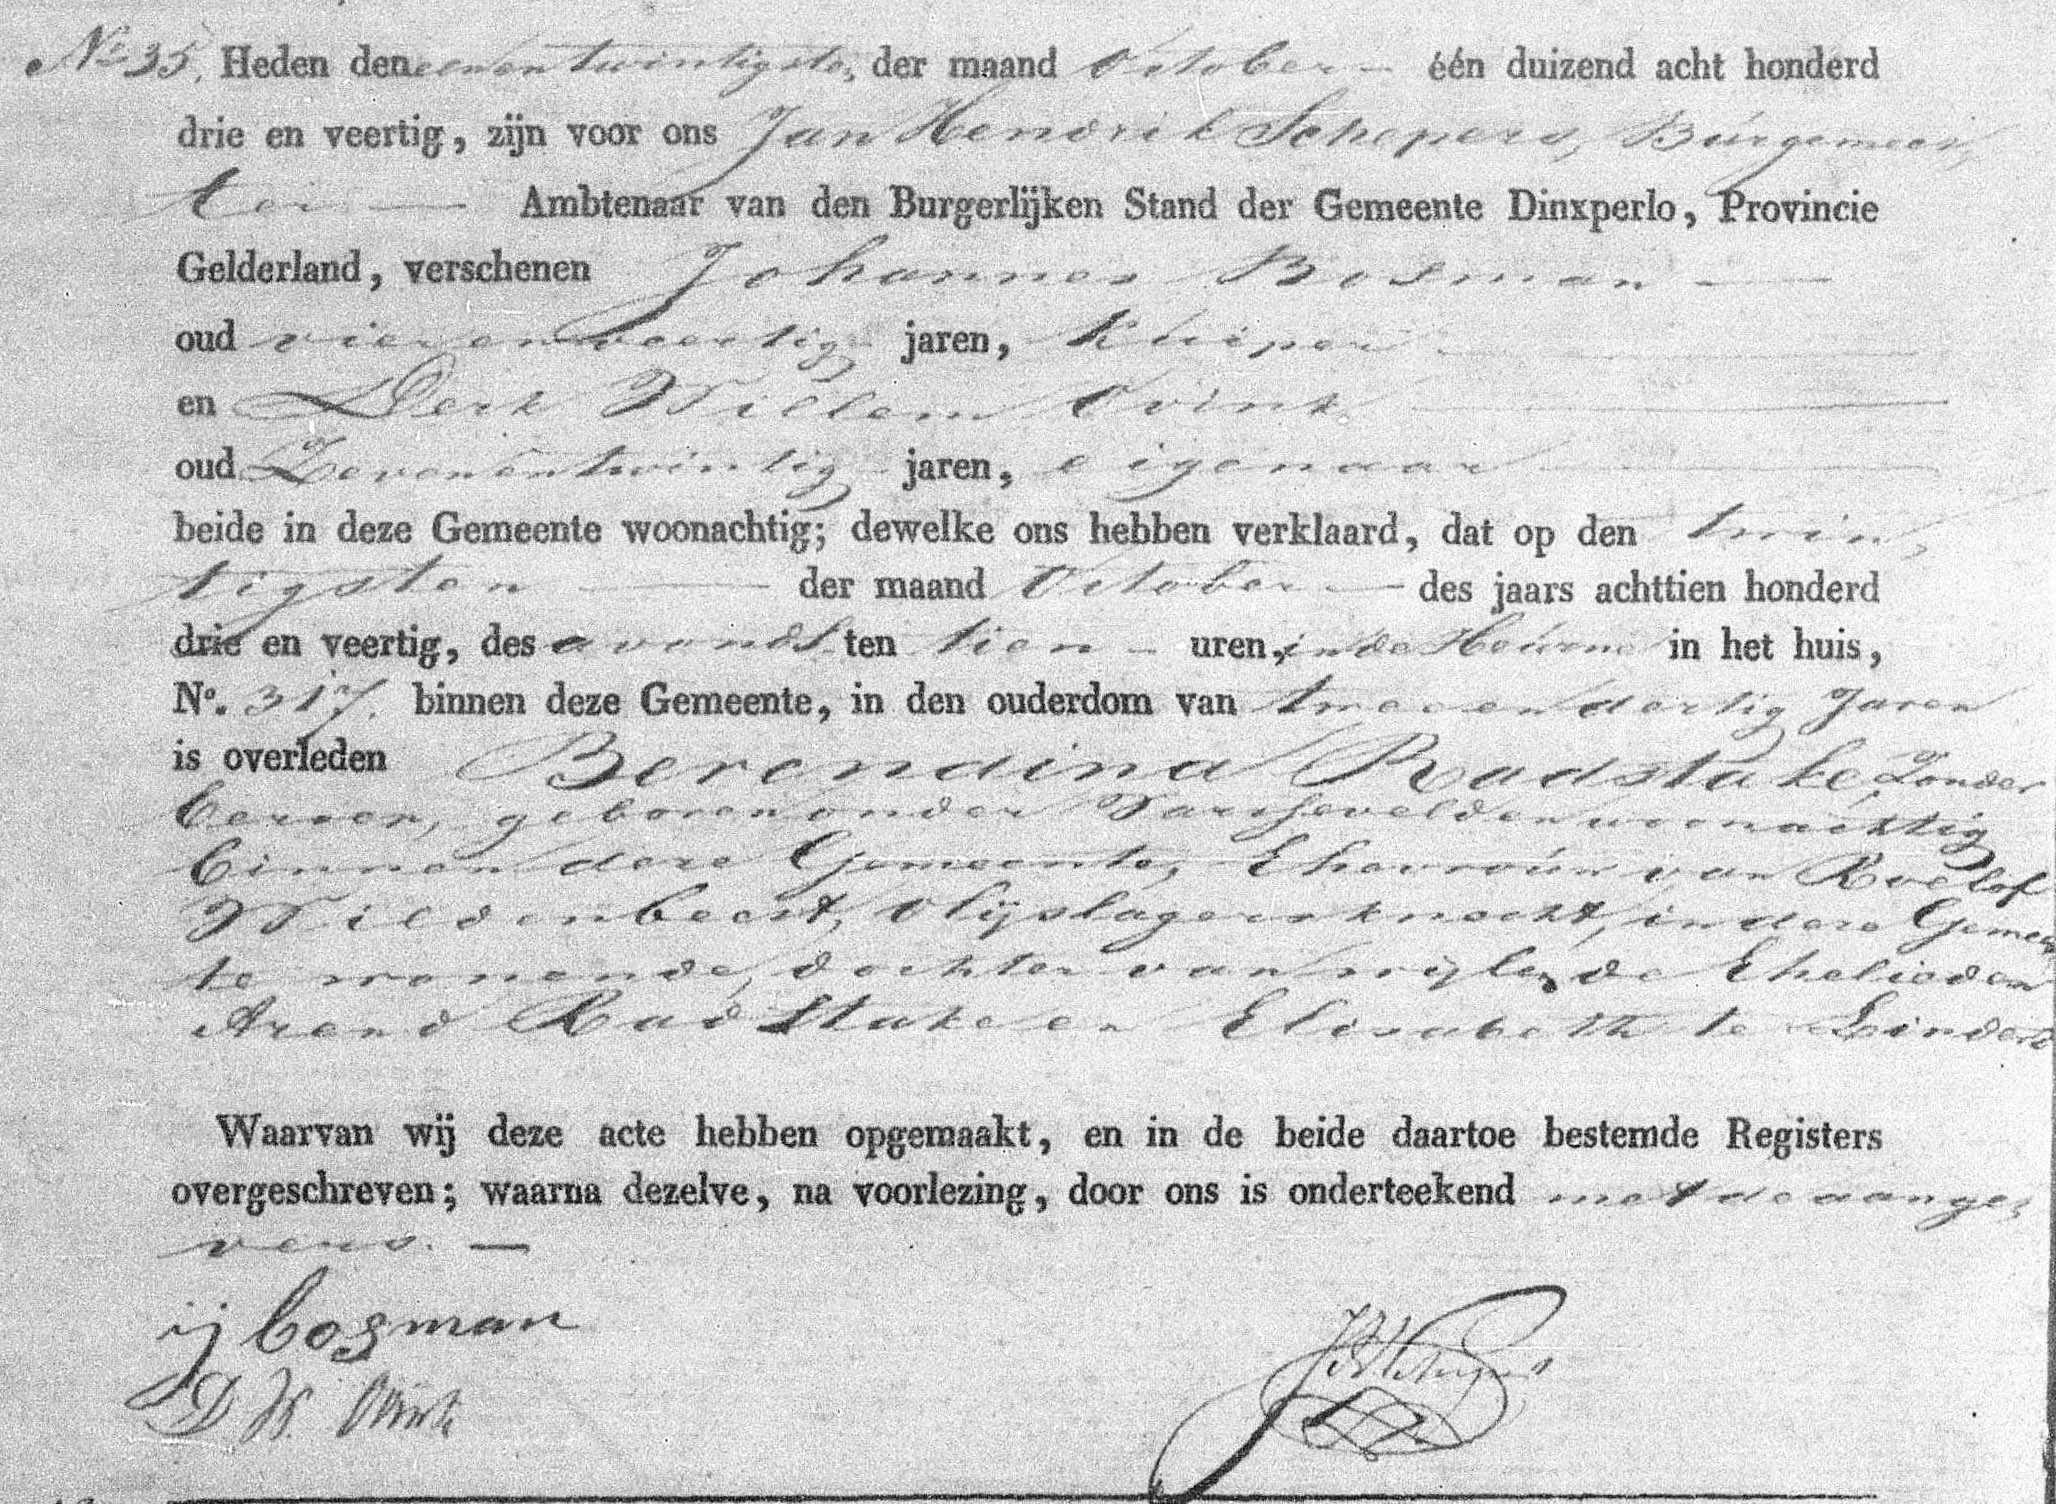 No 35. Heden den eenentwintigste, der maand October — één duizend acht honderd
drie en veertig, zijn voor ons Jan Hendrik Schepers, Burgemees,
ter — Ambtenaar van den Burgerlijken Stand der Gemeente Dinxperlo, Provincie
Gelderland, verschenen Johannes Bosman —
oud vierenveertig jaren, Kuiper —
en Derk Willem Ovink —
oud Zevenentwintig jaren, eigenaar —
beide in deze Gemeente woonachtig; dewelke ons hebben verklaard, dat op den twin,
tigsten — der maand October — des jaars achttien honderd
drie en veertig, des avonds ten tien — uren, in de Heurne in het huis,
No. 317. binnen deze Gemeente, in den ouderdom van tweeendertig Jaren
is overleden Berendina Radstake, Zonder
beroep, geboren onder Varsseveld en woonachtig
binnen deze Gemeente, Ehevrouw van Roelof
Wildenbeest, Olijslagersknecht, in deze Gemeen
te wonende, dochter van wijlen de Ehelieden
Arend Radstake en Elisabeth te Lindert
Waarvan wij deze acte hebben opgemaakt, en in de beide daartoe bestemde Registers
overgeschreven; waarna dezelve, na voorlezing, door ons is onderteekend met de aange,
vers. —
ij bosman
D W. Ovink
JHSchepers